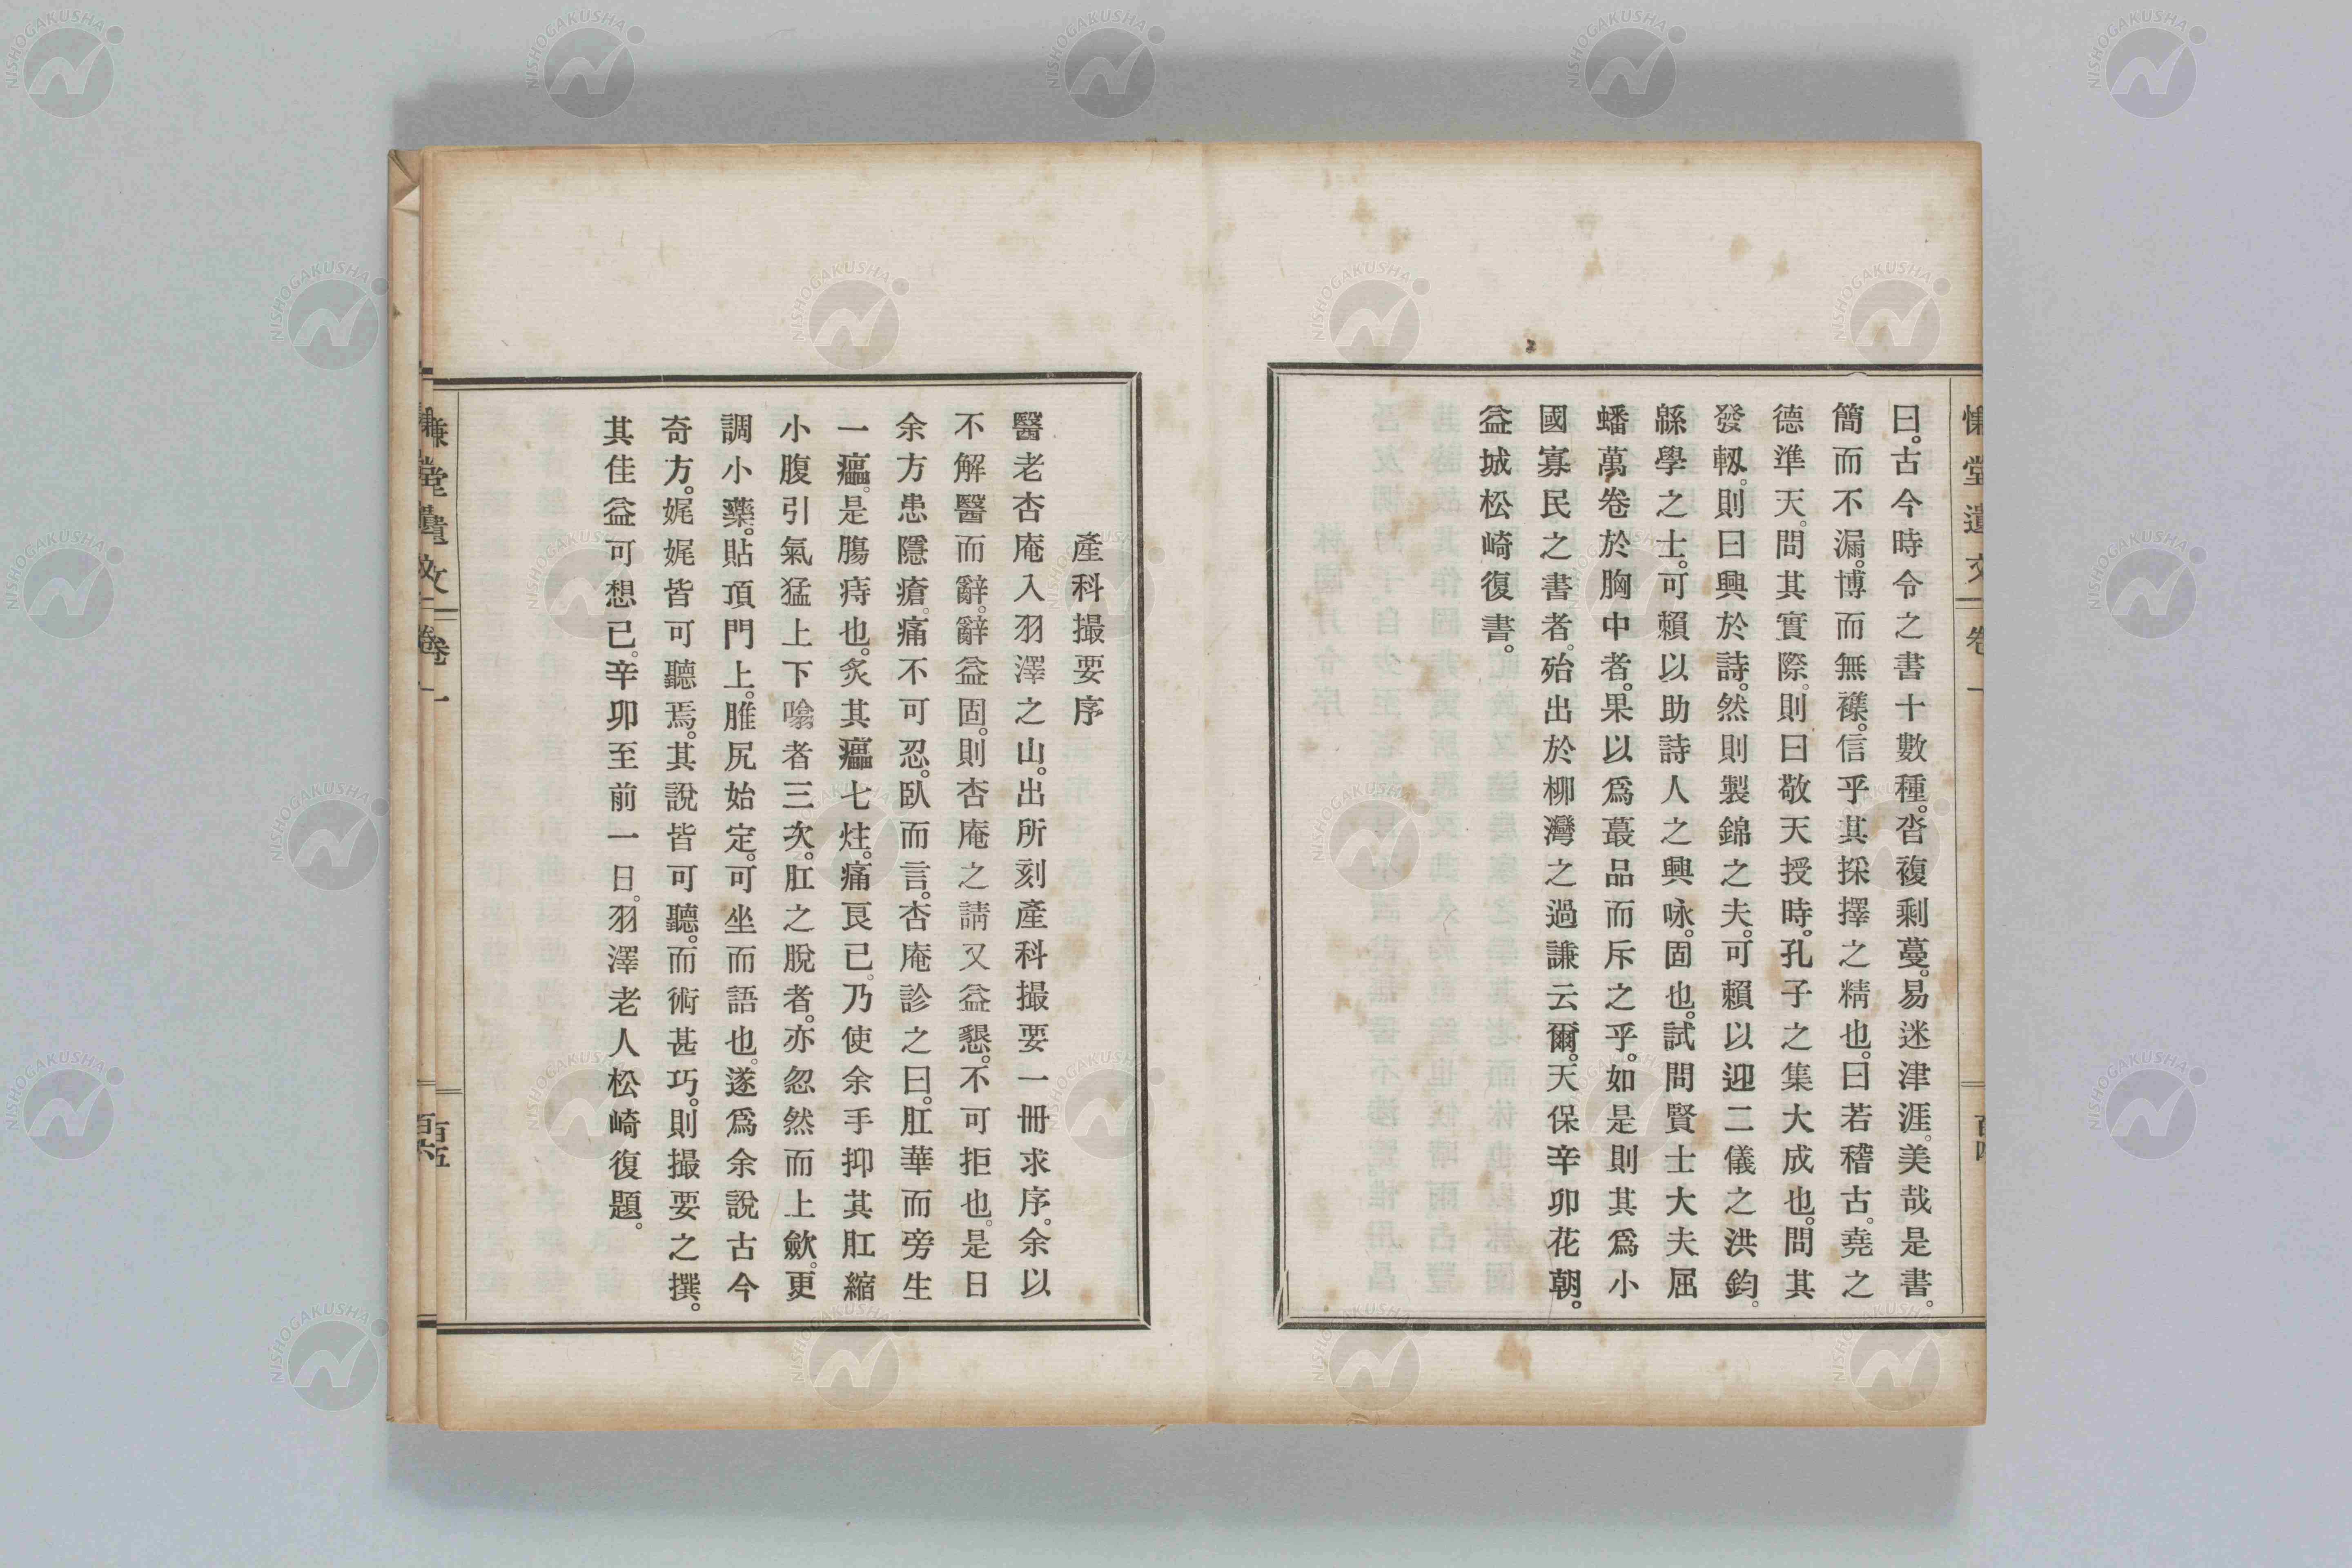 曰。古今時令之書十數種。沓複剩蔓。易迷津涯。美哉是書。
簡而不漏。博而無襍。信乎其採擇之精也。曰若稽古。堯之
德準天。問其實際。則曰敬天授時。孔子之集大成也。問其
發軔。則曰興於詩。然則製錦之夫。可賴以迎二儀之洪鈞。
緜學之士。可賴以助詩人之興咏。固也。試問賢士大夫屈
蟠萬卷於胸中者。果以爲蕞品而斥之乎。如是則其爲小
國寡民之書者。殆出於柳灣之過謙云爾。天保辛卯花朝。
益城松崎復書。
產科撮要序
醫老杏庵入羽澤之山。出所刻產科撮要一冊求序。余以
不解醫而辭。辭益固。則杏庵之請又益懇。不可拒也。是日
余方患隱瘡。痛不可忍。臥而言。杏庵診之曰。肛華而旁生
一㿈。是腸痔也。炙其㿈七炷。痛良已。乃使余手抑其肛縮
小腹引氣猛上下噏者三次。肛之脫者。亦忽然而上歛。更
調小藥。貼頂門上。脽尻始定。可坐而語也。遂爲余說古今
奇方。娓娓皆可聽焉。其說皆可聽。而術甚巧。則撮要之撰。
其佳益可想已。辛卯至前一日。羽澤老人松崎復題。
慊堂遺文 卷一
百五
NISHOGAKUSHA